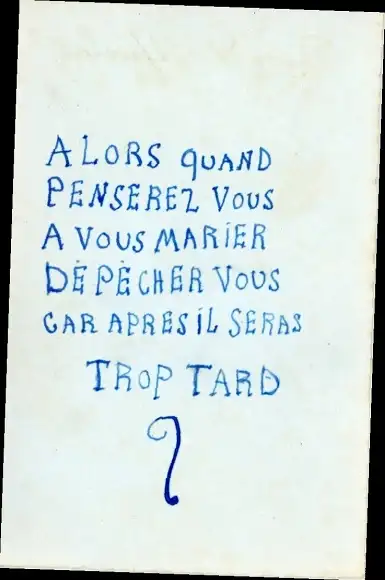 ALORS QUAND
PENSEREZ VOUS
A VOUS MARIER
DÉPÊCHER VOUS
CAR APRES IL SERAS
TROP TARD
?